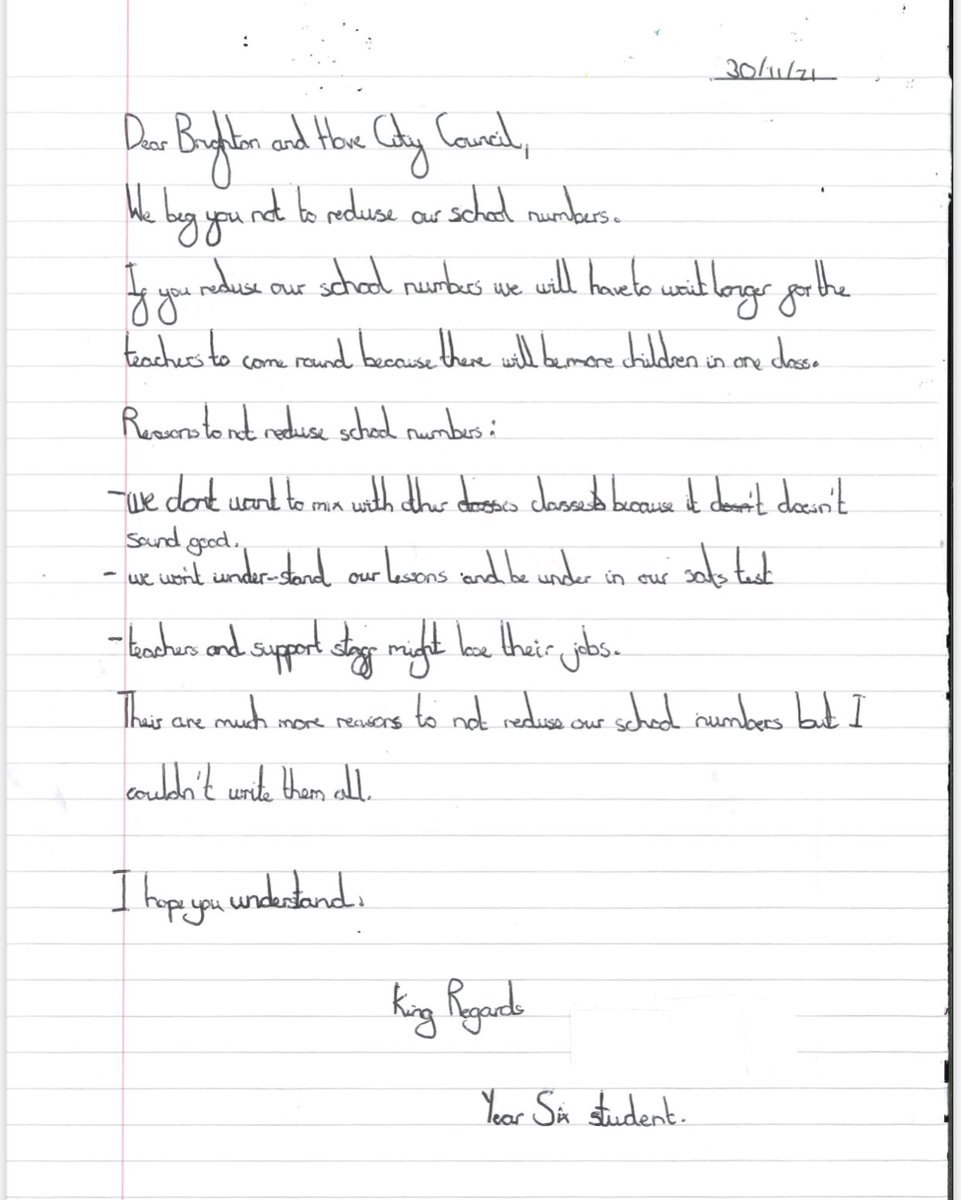 30/11/21
Dear Brighton and Hove City Council,
We beg you not to reduse our school numbers.
If you reduse our school numbers we will have to wait longer for the
teachers to come round because there will be more children in one class.
Reasons to not reduse school numbers:
- we dont want to mix with other classes because it doesn't
sound good.
- we won't under-stand our lessons and be under in our sats test
- teachers and support staff might lose their jobs.
Their are much more reasons to not reduse our school numbers but I
couldn't write them all.
I hope you understand.
King Regards
Year Six student.